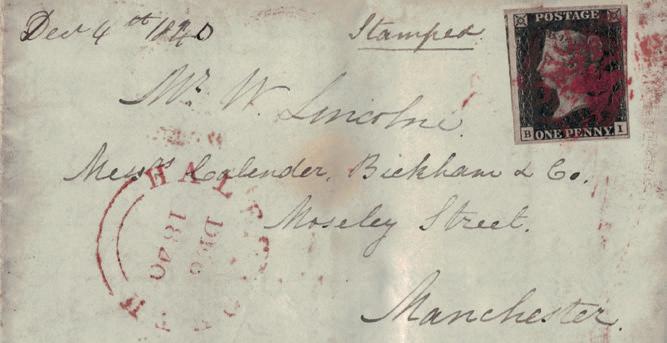 Decr 4th 1840
Stamped
POSTAGE
B ONE PENNY I
Mr. W. Lincolne.
Messrs Calender, Bickham & Co.
Moseley Street.
Manchester.
HAL
DE6
1840